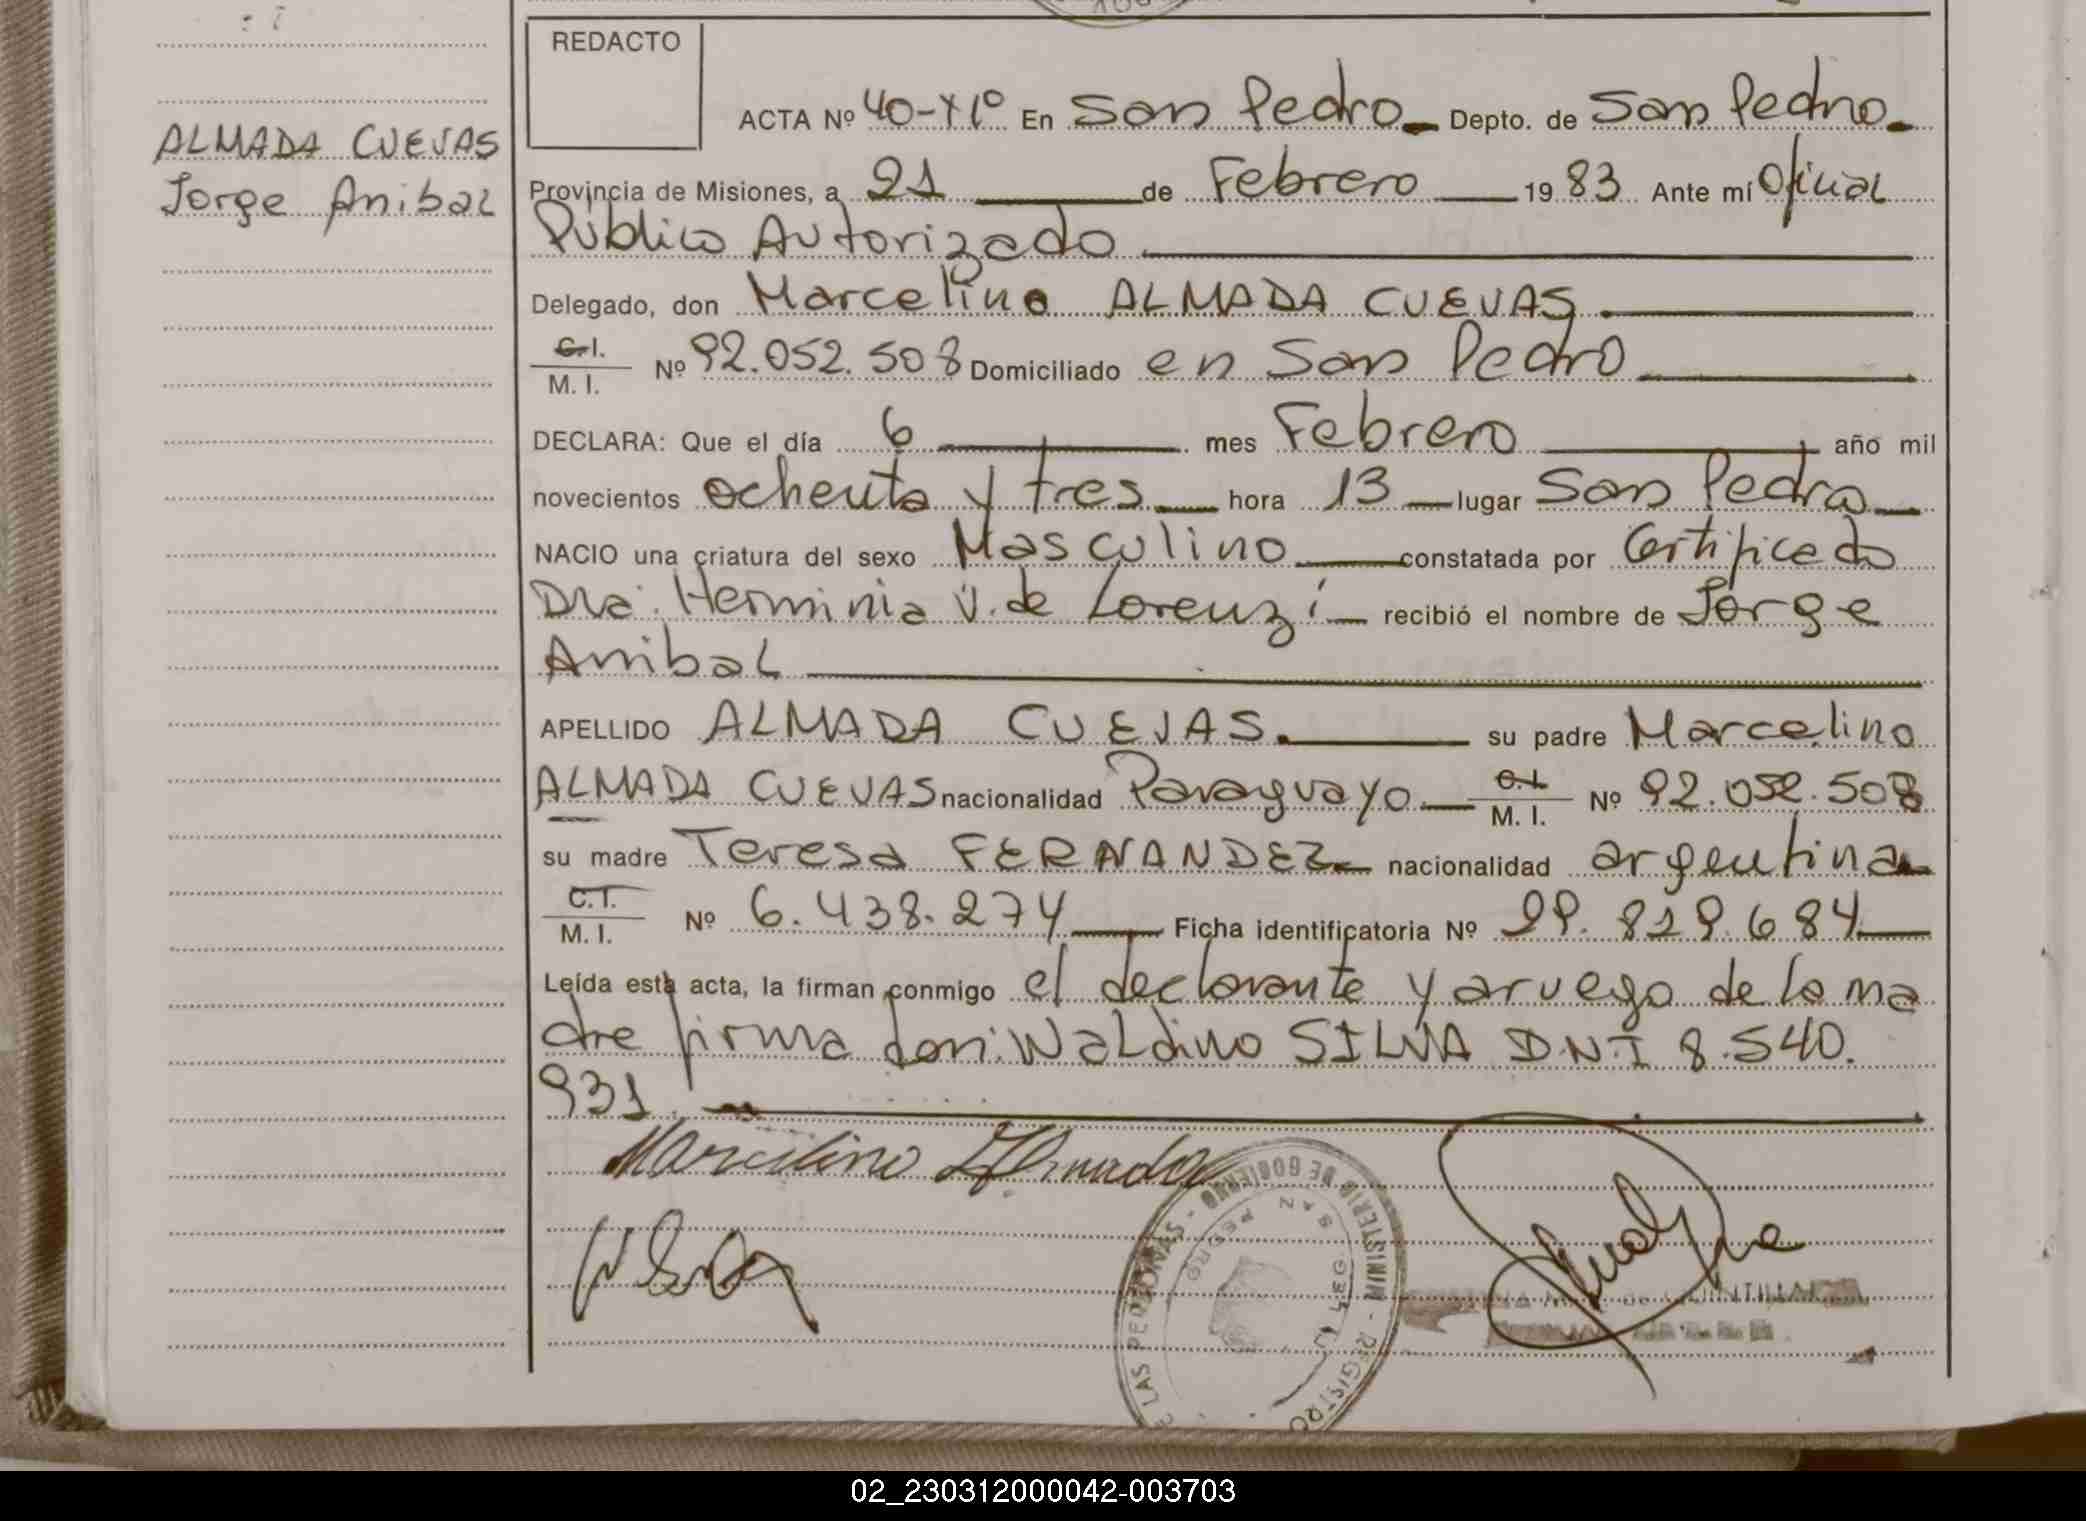 REDACTO
ACTA Nº 40-T1º En San Pedro Depto. de San Pedro
ALMADA CUEVAS
Jorge Anibal
Provincia de Misiones, a 21 de Febrero 1983 Ante mí Oficial
Público Autorizado
Delegado, don Marcelino ALMADA CUEVAS.
C.I.
M. I. Nº 92.052.508 Domiciliado en San Pedro
DECLARA: Que el día 6 mes Febrero año mil
novecientos ochenta y tres hora 13 lugar San Pedro
NACIO una criatura del sexo Masculino constatada por Certificado
Dra. Herminia V. de Lorenzi recibió el nombre de Jorge
Anibal
APELLIDO ALMADA CUEVAS. su padre Marcelino
ALMADA CUEVAS nacionalidad Paraguayo C.I. M. I. Nº 92.052.508
su madre Teresa FERNANDEZ nacionalidad argentina
C.I.
M. I. Nº 6.438.274 Ficha identificatoria Nº 29.819.684
Leída esta acta, la firman conmigo el declarante y a ruego de la ma
dre firma don: Waldino SILVA DNI 8.540.
931.
Marcelino Almada
MINISTERIO DE GOBIERNO - REGISTRO DE LAS PERSONAS -
SAN PEDRO
02_230312000042-003703